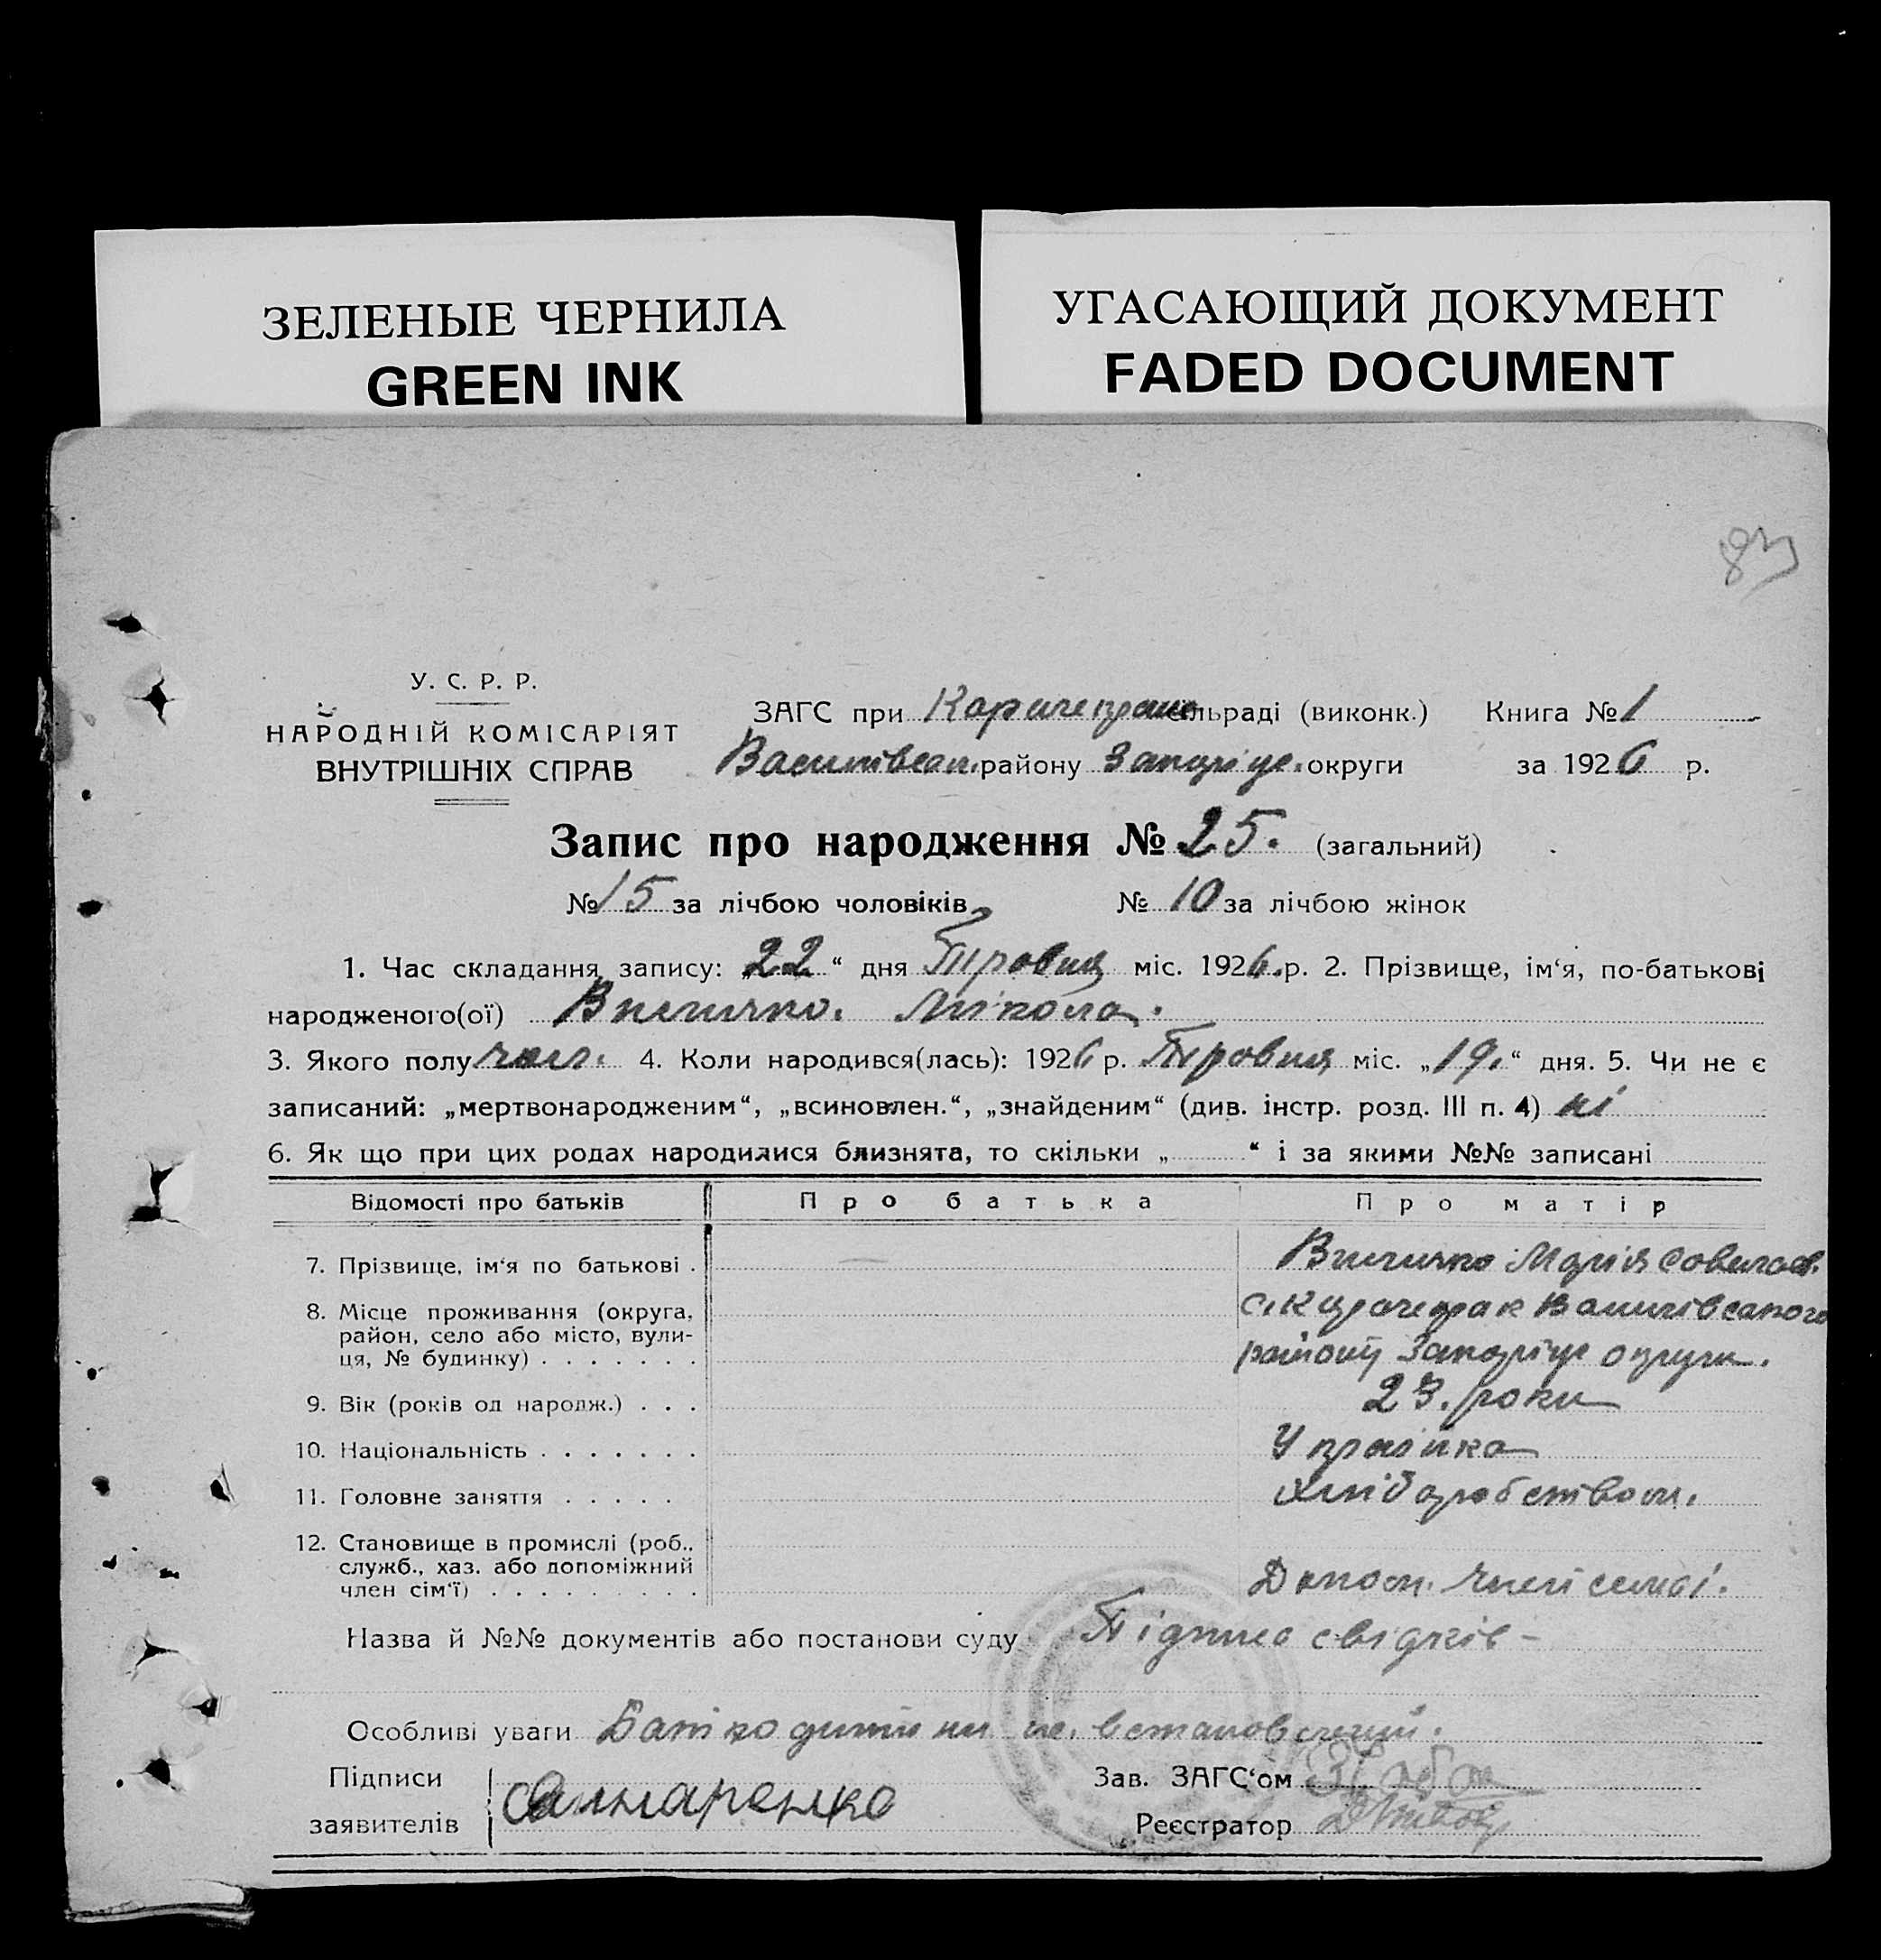 ЗЕЛЕНЫЕ ЧЕРНИЛА
GREEN INK
УГАСАЮЩИЙ ДОКУМЕНТ
FADED DOCUMENT
83
У. С. Р. Р.
НАРОДНІЙ КОМІСАРІЯТ
ВНУТРІШНІХ СПРАВ
ЗАГС при сільраді (виконк.) Книга № 1
Василівськ. району Запоріж. округи за 1926 р.
Запис про народження № 25. (загальний)
№ 15 за лічбою чоловіків № 10 за лічбою жінок
1. Час складання запису: „22“ дня міс. 1926 р. 2. Прізвище, ім‘я, по-батькові
народженого(ої) Микола.
3. Якого полу чол. 4. Коли народився(лась): 1926 р. міс. „19.“ дня. 5. Чи не є
записаний: „мертвонародженим“, „всиновлен.“, „знайденим“ (див. інстр. розд. III п. 4) ні
6. Як що при цих родах народилися близнята, то скільки „ “ і за якими №№ записані
Відомості про батьків Про батька Про матір
7. Прізвище, ім‘я по батькові . — Марія
8. Місце проживання (округа, Василівського
район, село або місто, вули- району Запоріж округи.
ця, № будинку) . . . . . . .
9. Вік (років од народж.) . . . 23. роки
10. Національність . . . . . . . Українка
11. Головне заняття . . . . . хліборобством.
12. Становище в промислі (роб..
служб., хаз. або допоміжний Допом. член семьі.
член сім‘ї) . . . . . . . . .
Назва й №№ документів або постанови суду Підписа свідків -
Особливі уваги Батько дитини не встановлений.
Підписи
заявителів
Зав. ЗАГС‘ом
Реєстратор